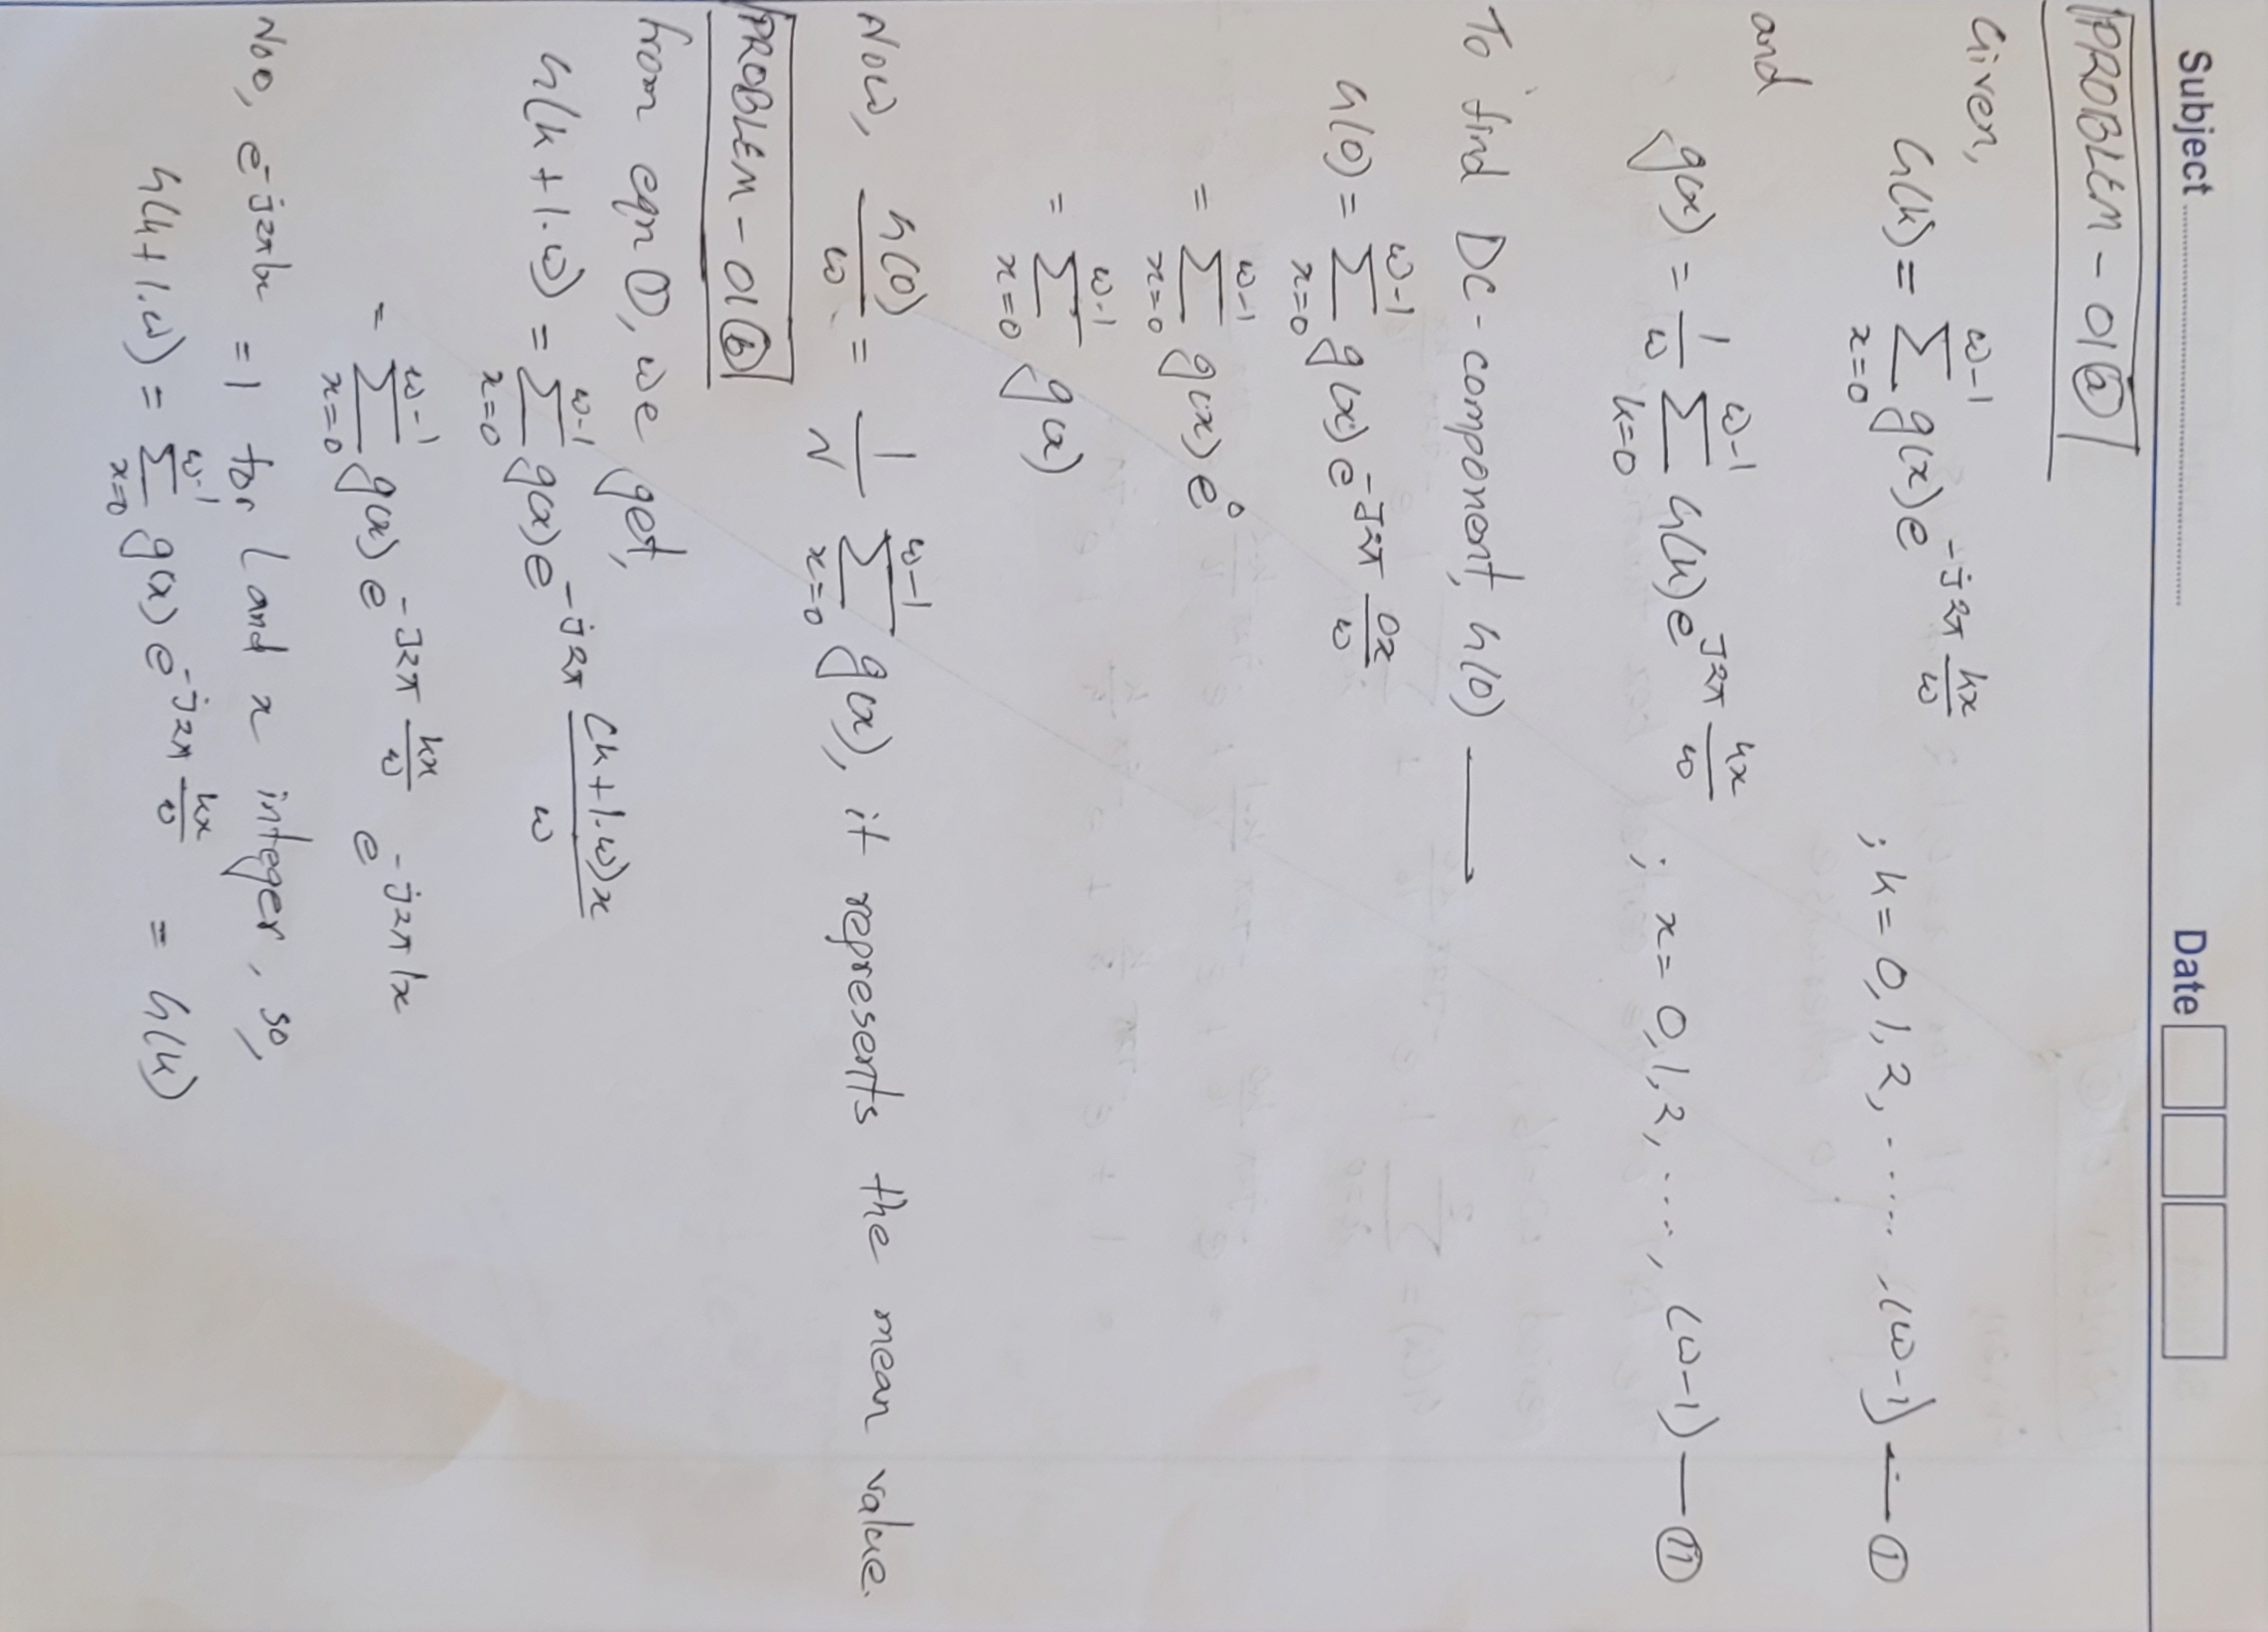 Subject
Date
PROBLEM - 01 ⓐ
Given,
G(k) = Σ_{x=0}^{ω-1} g(x) e^{-j2π kx/ω} ; k = 0, 1, 2, ......, (ω-1) — ①
and
g(x) = 1/ω Σ_{k=0}^{ω-1} G(k) e^{J2π kx/ω} ; x = 0,1,2, ...., (ω-1) — ⑪
To find DC-component, G(0) —
G(0) = Σ_{x=0}^{ω-1} g(x) e^{-J2π 0x/ω}
= Σ_{x=0}^{ω-1} g(x) e^0
= Σ_{x=0}^{ω-1} g(x)
Now, G(0)/ω = 1/N Σ_{x=0}^{ω-1} g(x), it represents the mean value.
PROBLEM - 01 ⓑ
from eqn ①, we get,
G(k + l.ω) = Σ_{x=0}^{ω-1} g(x) e^{-j2π (k+l.ω)x/ω}
= Σ_{x=0}^{ω-1} g(x) e^{-J2π kx/ω} e^{-j2π lx}
Now, e^{-j2πlx} = 1 for l and x integer, so,
G(k + l.ω) = Σ_{x=0}^{ω-1} g(x) e^{-j2π kx/ω} = G(k)